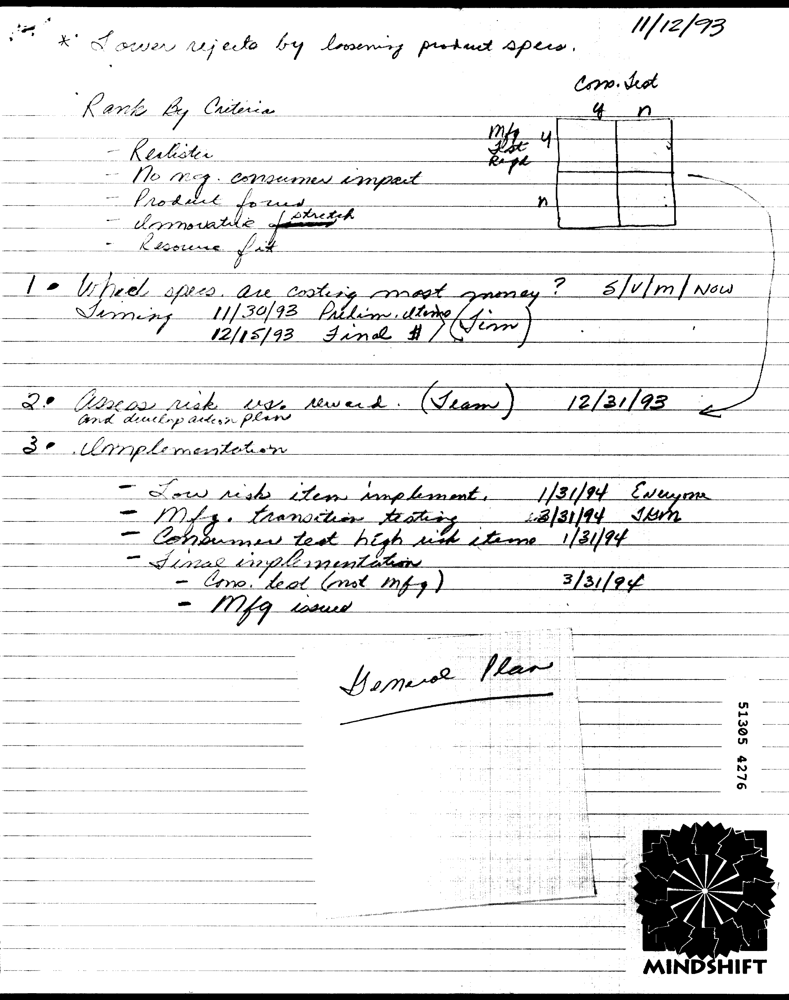 11/12/93
* Lower rejects by loosening product specs.
Cons. Test
y n
Rank By Criteria
Mfg
Test
Reqd
y
n
- Realistic
- No neg. consumer impact
- Product focus
- Innovative / stretch
- Resource fit
1. Which specs. are costing most money? S/V/M/Now
Timing 11/30/93 Prelim. items
12/15/93 Final # (Jim)
2. Assess risk vs. reward. (Team) 12/31/93
and develop action plan
3. Implementation
- Low risk item implement. 1/31/94 Everyone
- Mfg. transition testing 3/31/94
- Consumer test high risk items 1/31/94
- Final implementation
- Cons. test (not mfg) 3/31/94
- Mfg issued
General Plan
51305 4276
MINDSHIFT